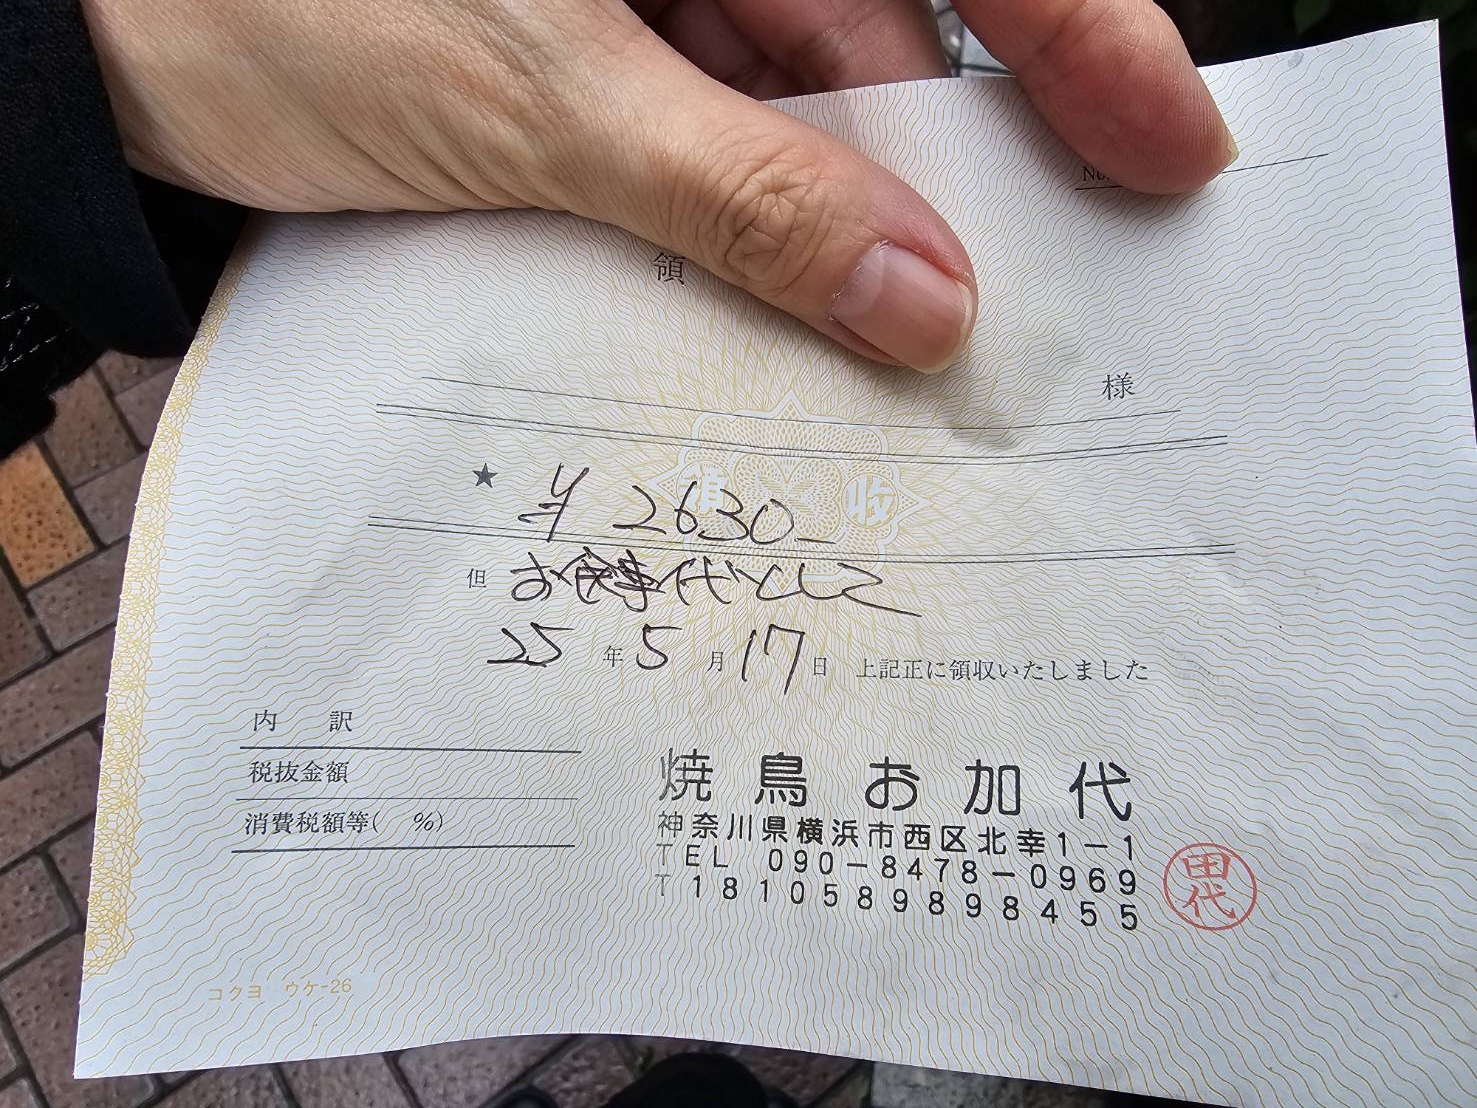 No.
領
様
★ ¥2630-
但 お食事代として
25年5月17日 上記正に領収いたしました
内 訳
税抜金額
消費税額等( %)
焼鳥お加代
神奈川県横浜市西区北幸1-1
TEL 090-8478-0969
T1810589898455
田代
コクヨ ウケ-26
領収